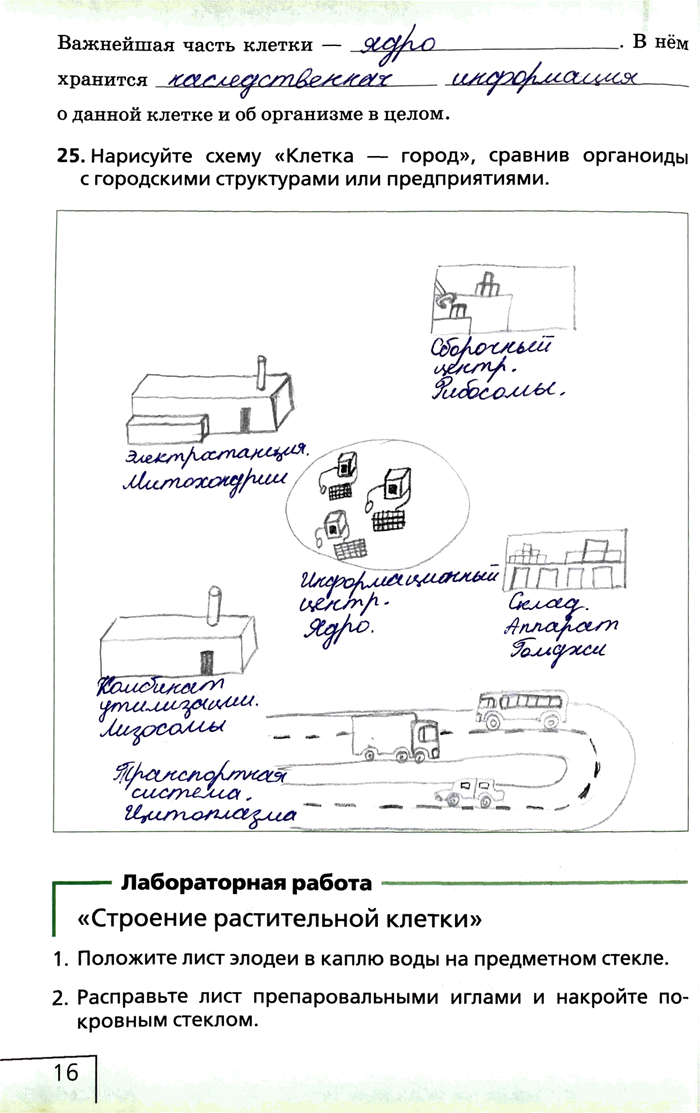 Важнейшая часть клетки — ядро. В нём
хранится наследственная информация
о данной клетке и об организме в целом.
25. Нарисуйте схему «Клетка — город», сравнив органоиды
с городскими структурами или предприятиями.
Сборочный
центр.
Рибосомы.
Электростанция.
Митохондрии
Информационный
центр.
Ядро.
Склад.
Аппарат
Гольджи
Комбинат
утилизации.
Лизосомы
Транспортная
система.
Цитоплазма
Лабораторная работа
«Строение растительной клетки»
1. Положите лист элодеи в каплю воды на предметном стекле.
2. Расправьте лист препаровальными иглами и накройте по-
кровным стеклом.
16